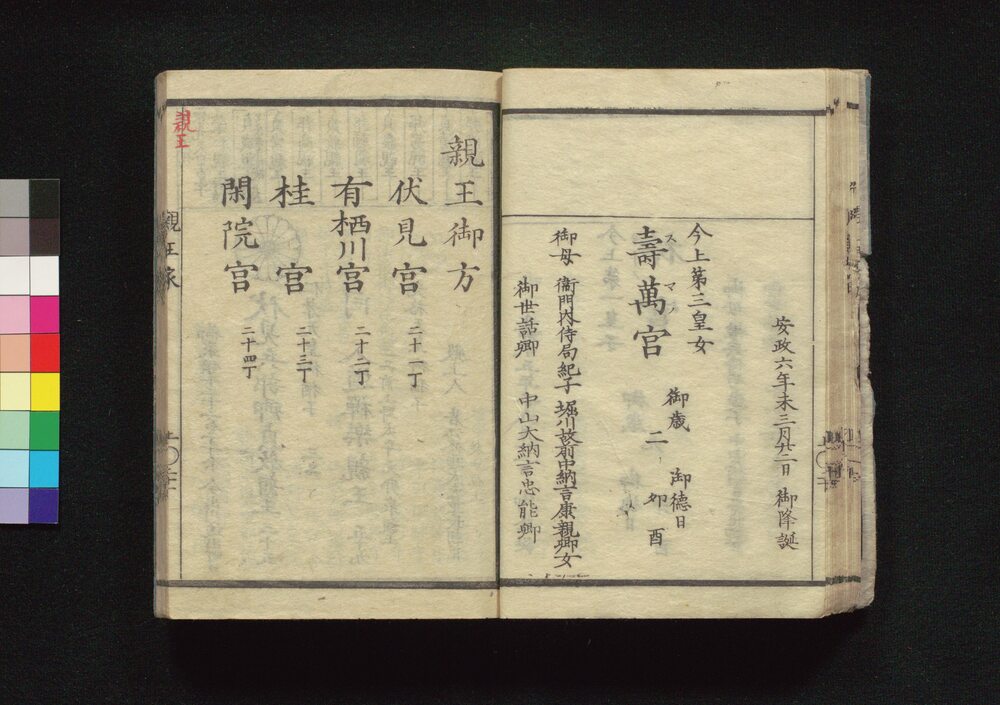 安政六年未三月廿二日 御降誕
今上第三皇女
壽萬宮 御歳 二 御德日 卯 酉
スマノ
御母 衞門内侍局紀子 堀川故前中納言康親卿女
御世話卿 中山大納言忠能卿
親王御方
伏見宮 二十一丁
有栖川宮 二十二丁
桂宮 二十三丁
閑院宮 二十四丁
親王家
親王